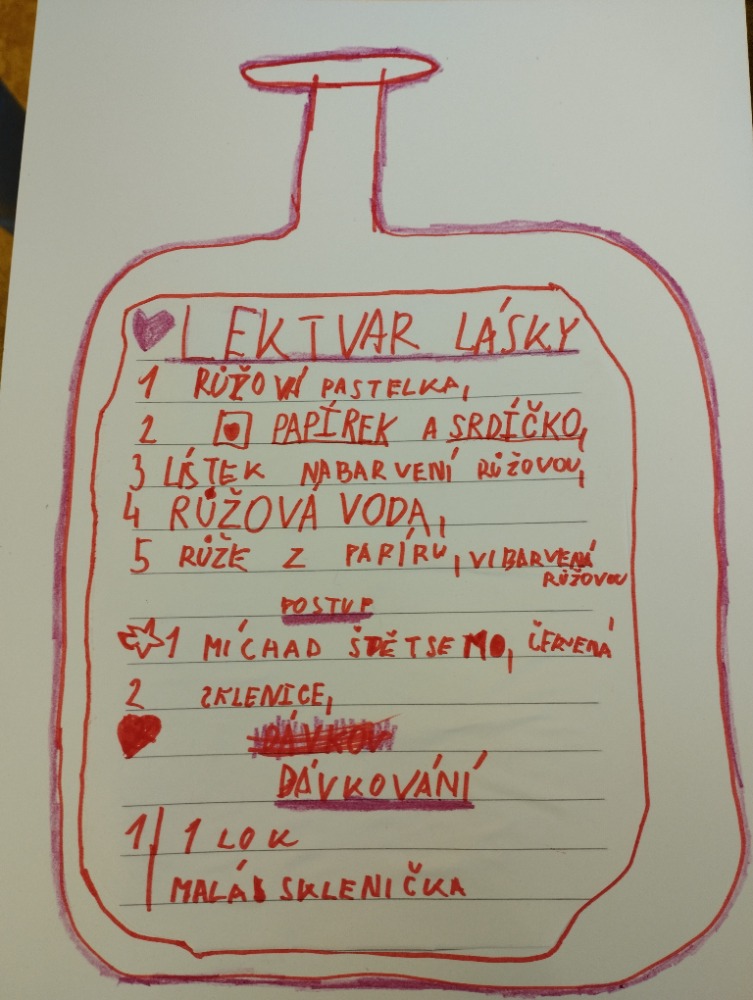 LEKTVAR LÁSKY
1 RŮŽOVÁ PASTELKA,
2 PAPÍREK A SRDÍČKO,
3 LÍSTEK NABARVENÍ RŮŽOVOU,
4 RŮŽOVÁ VODA,
5 RŮŽE Z PAPÍRU, VIBARVENÁ
RŮŽOVOU
POSTUP
1 MÍCHAD ŠTĚTSEMO, ČERVENÁ
2 SKLENICE,
DÁVKOV
DÁVKOVÁNÍ
1 1 LOK
MALÁ SKLENIČKA